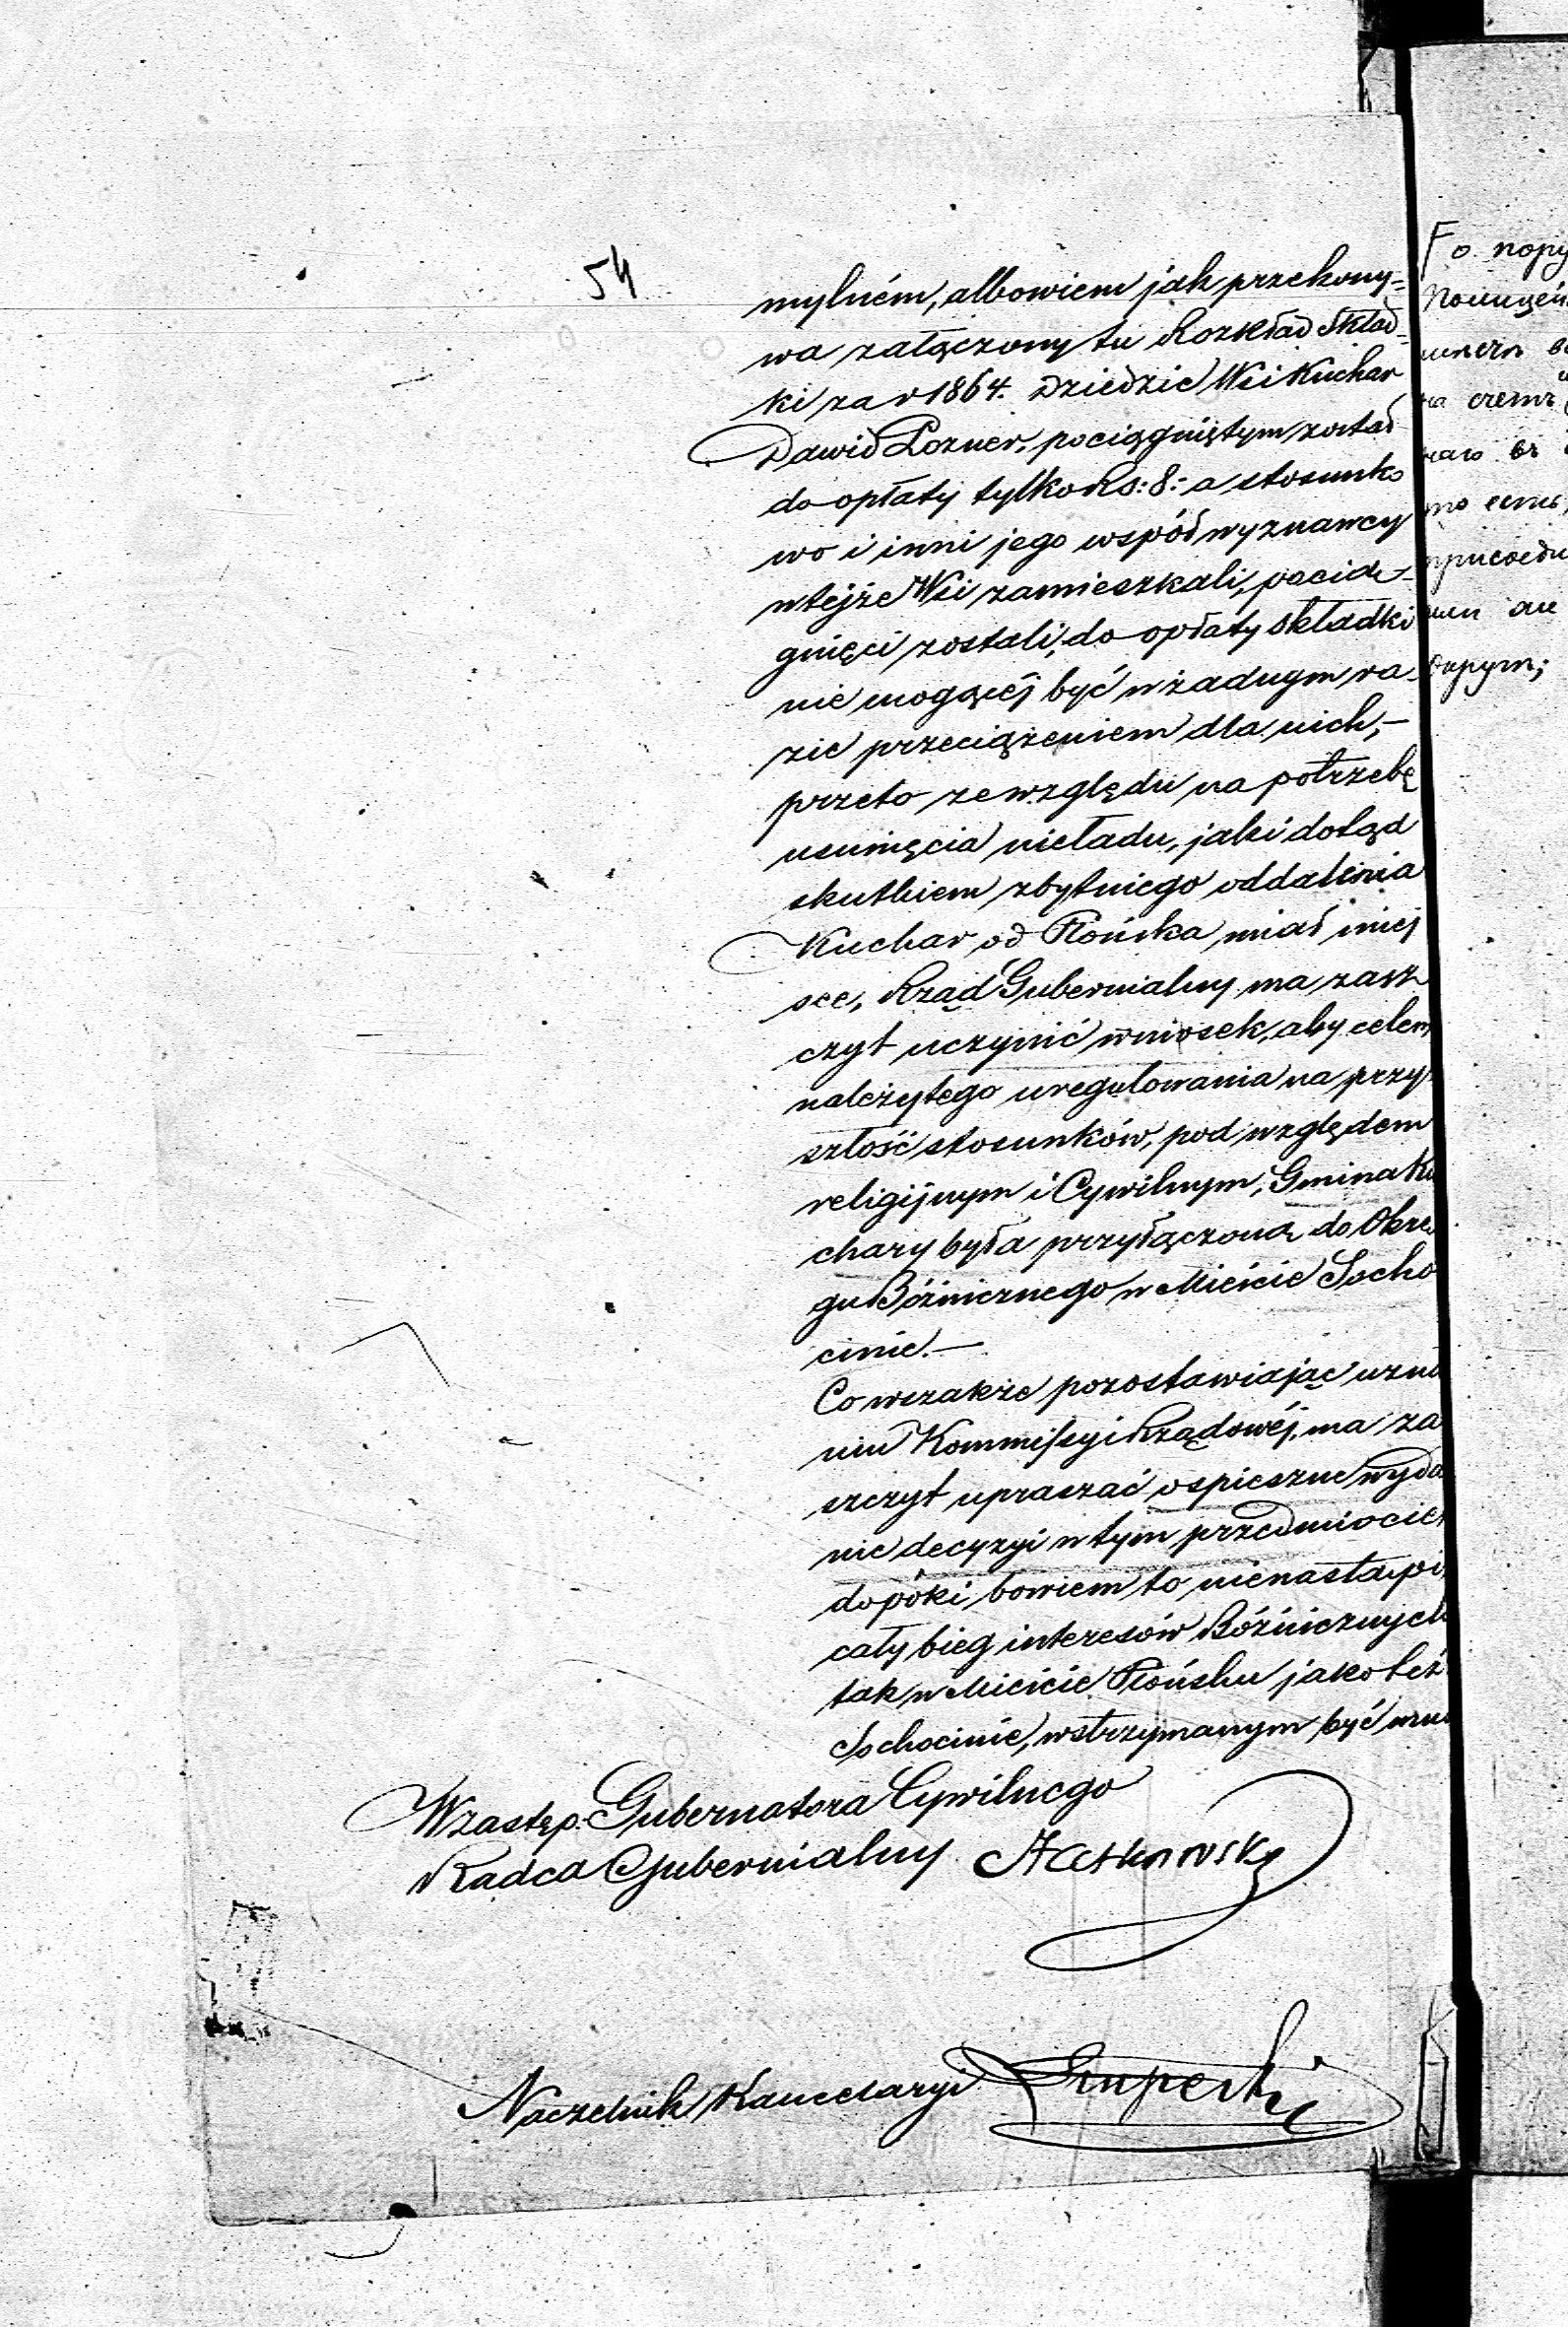 54
mylném, albowiem jak przekony=
wa załączony tu Rozkład Skład=
ki za r 1864. Dziedzic Wsi Kuchar
Dawid Pozner, pociągniętym został
do opłaty tylko Rs: 8: a stosunko
wo i inni jego współwyznawcy
w tejże Wsi zamieszkali, pocią-
gnięci zostali, do opłaty składki
nie mogącej być w żadnym ra-
zie przeciążeniem dla nich,—
przeto ze względu na potrzebę
usunięcia nieładu, jaki dotąd
skutkiem zbytniego oddalenia
Kuchar od Płońska miał miej
sce, Rząd Gubernialny ma zasz
czyt uczynić wniosek, aby celem
należytego uregulowania na przy
szłość stosunków, pod względem
religijnym i Cywilnym, Gmina Ku
chary była przyłączoną do Okrę
gu Bóżnicznego w Mieście Socho
cinie.—
Co wszakże pozostawiając uzna
niu Kommissyi Rządowéj, ma za
szczyt upraszać o spieszne wyda
nie decyzyi w tym przedmiocie
dopóki bowiem to nienastąpi
cały bieg interesów Bóżnicznych
tak w Mieście Płońsku jako też
Sochocinie, wstrzymanym być mu
W zastęp. Gubernatora Cywilnego
Radca Gubernialny
Naczelnik Kancelaryi